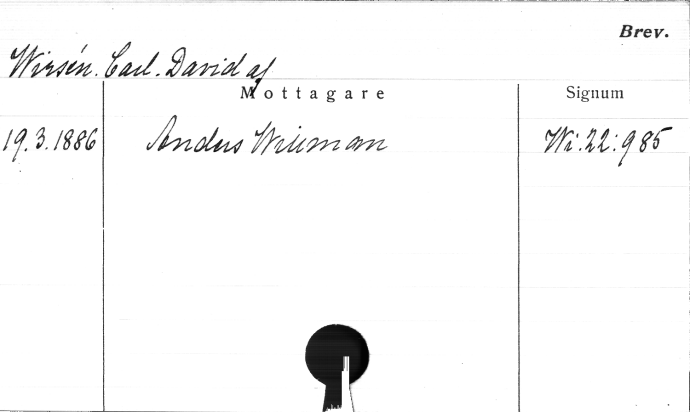 Brev.
Wirsén. Carl. David af
Mottagare Signum
19.3.1886 Anders Willman Wi:22:985